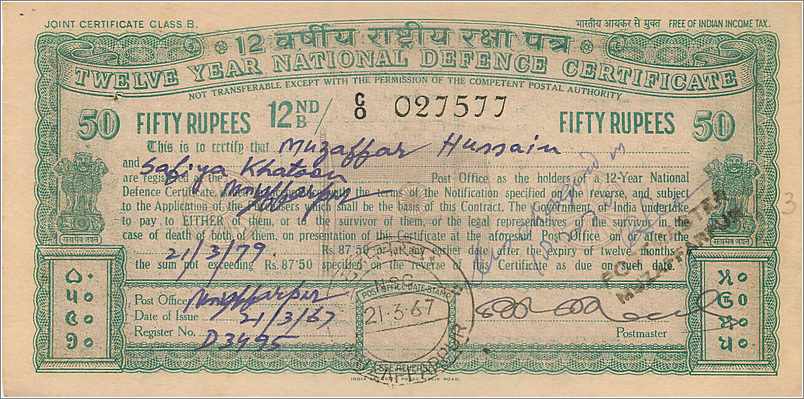 JOINT CERTIFICATE CLASS B.
भारतीय आयकर से मुक्त FREE OF INDIAN INCOME TAX.
12 वर्षीय राष्ट्रीय रक्षा पत्र
TWELVE YEAR NATIONAL DEFENCE CERTIFICATE
NOT TRANSFERABLE EXCEPT WITH THE PERMISSION OF THE COMPETENT POSTAL AUTHORITY
50 FIFTY RUPEES 12ND/B C/0 027577 FIFTY RUPEES 50
This is to certify that Muzaffar Hussain
and Safiya Khatoon
are registered Post Office as the holders of a 12-Year National
Defence Certificate, the terms of the Notification specified on the reverse, and subject
to the Application of the which shall be the basis of this Contract. The Government of India undertake
to pay to EITHER of them, or to the survivor of them, or the legal representatives of the survivor in the
case of death of both of them, on presentation of this Certificate at the aforesaid Post Office on or after the
21/3/79. Rs 87'50 or at any earlier date after the expiry of twelve months
the sum not exceeding Rs 87'50 specified on the reverse of this Certificate as due on such date.
Post Office Muzaffarpur
Date of Issue 21/3/67
Register No. D3495
POST OFFICE DATE STAMP
21.3.67
Postmaster
POSTMASTER
MUZAFFARPUR
3